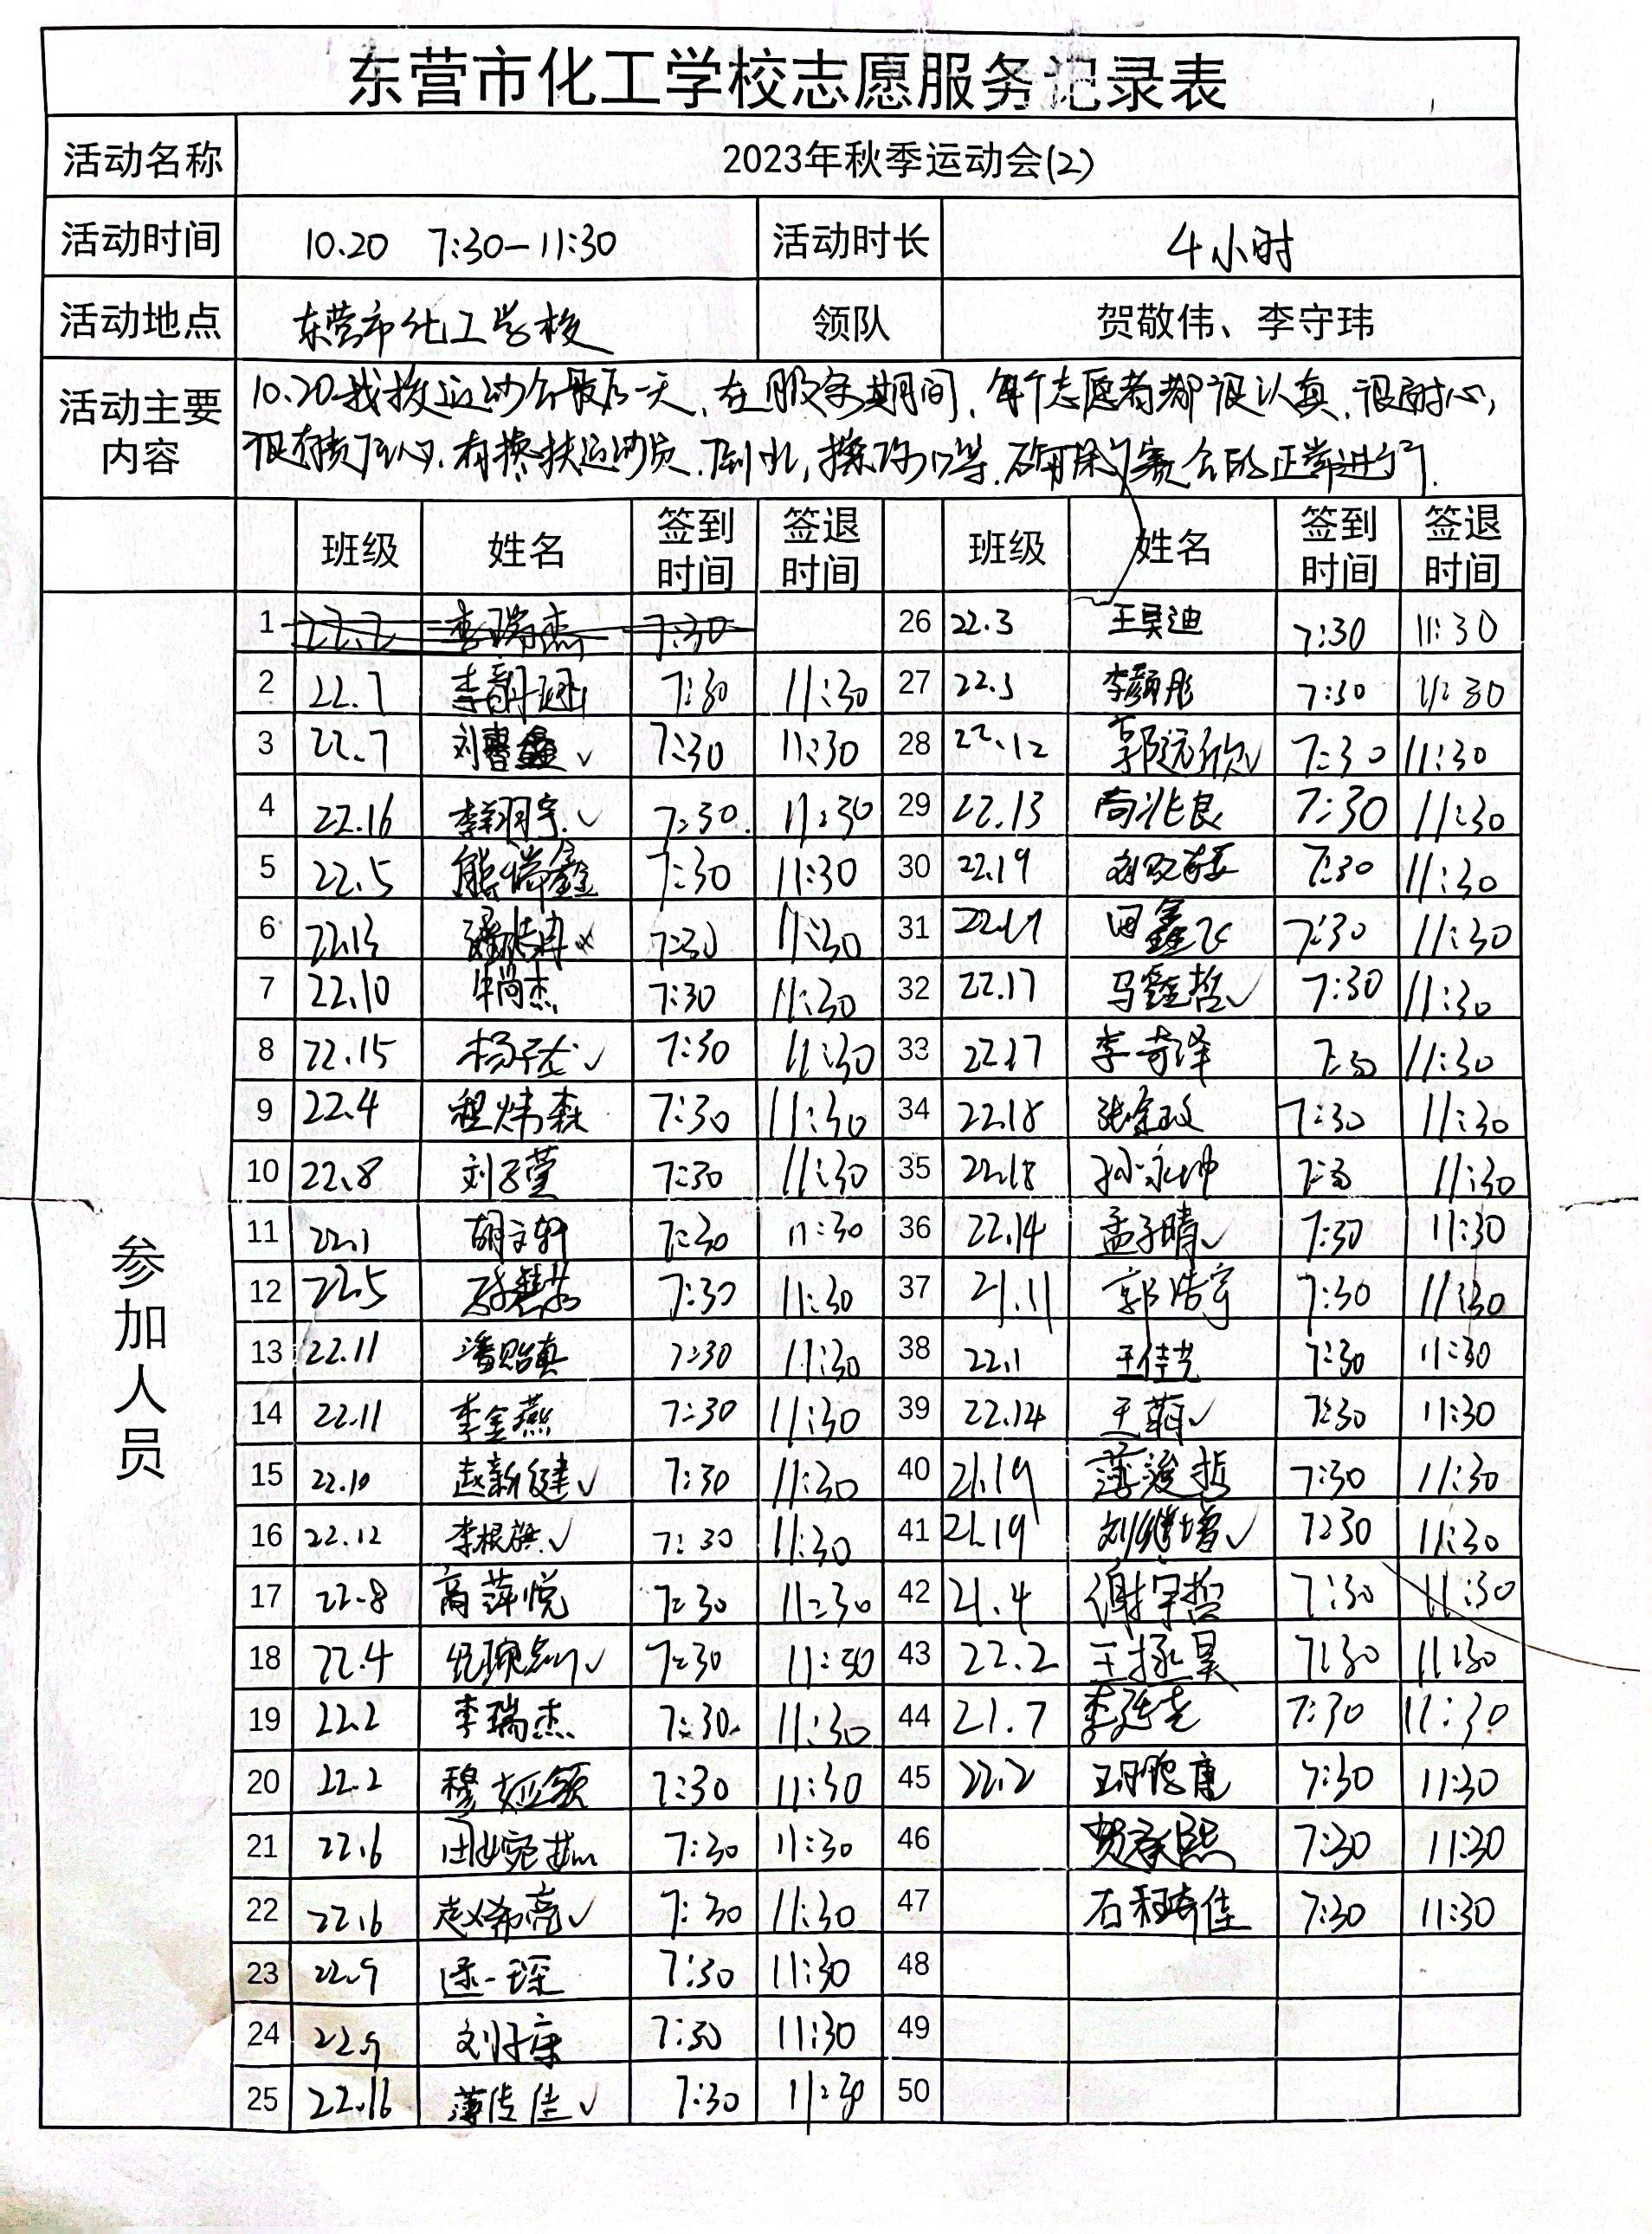 东营市化工学校志愿服务记录表
活动名称 2023年秋季运动会(2)
活动时间 10.20 7:30-11:30 活动时长 4小时
活动地点 东营市化工学校 领队 贺敬伟、李守玮
活动主要内容 10.20我校运动会最后一天,在服务期间,每个志愿者都很认真,很耐心,
很有责任心,有搀扶运动员,倒水,等,确保赛会的正常进行.
班级 姓名 签到时间 签退时间 班级 姓名 签到时间 签退时间
参加人员
1 22.2 李瑞杰 7:30 26 22.3 王昊迪 7:30 11:30
2 22.7 7:30 11:30 27 22.3 李颜彤 7:30 11:30
3 22.7 刘 7:30 11:30 28 22.12 郭远欣 7:30 11:30
4 22.16 李翔宇 7:30 11:30 29 22.13 尚兆良 7:30 11:30
5 22.5 熊 鑫 7:30 11:30 30 22.19 7:30 11:30
6 22.13 7:30 11:30 31 22.17 田鑫飞 7:30 11:30
7 22.10 牛尚杰 7:30 11:30 32 22.17 马鑫哲 7:30 11:30
8 22.15 杨子龙 7:30 11:30 33 22.17 李奇泽 7:30 11:30
9 22.4 程炜森 7:30 11:30 34 22.18 张 7:30 11:30
10 22.8 刘子萱 7:30 11:30 35 22.18 孙永坤 7:30 11:30
11 22.1 胡文轩 7:30 11:30 36 22.14 孟子晴 7:30 11:30
12 22.5 7:30 11:30 37 21.11 郭浩宇 7:30 11:30
13 22.11 潘贻真 7:30 11:30 38 22.1 王佳艺 7:30 11:30
14 22.11 李金燕 7:30 11:30 39 22.14 王 7:30 11:30
15 22.10 赵新健 7:30 11:30 40 21.19 薄浚哲 7:30 11:30
16 22.12 李根旗 7:30 11:30 41 21.19 刘继增 7:30 11:30
17 22.8 高萍悦 7:30 11:30 42 21.4 谢宇哲 7:30 11:30
18 22.4 7:30 11:30 43 22.2 王拯昊 7:30 11:30
19 22.2 李瑞杰 7:30 11:30 44 21.7 李 7:30 11:30
20 22.2 穆 颖 7:30 11:30 45 22.2 7:30 11:30
21 22.6 田婉茹 7:30 11:30 46 贺 熙 7:30 11:30
22 22.6 赵希亮 7:30 11:30 47 石 佳 7:30 11:30
23 22.9 一琛 7:30 11:30 48
24 22.9 刘子康 7:30 11:30 49
25 22.16 薄传佳 7:30 11:30 50